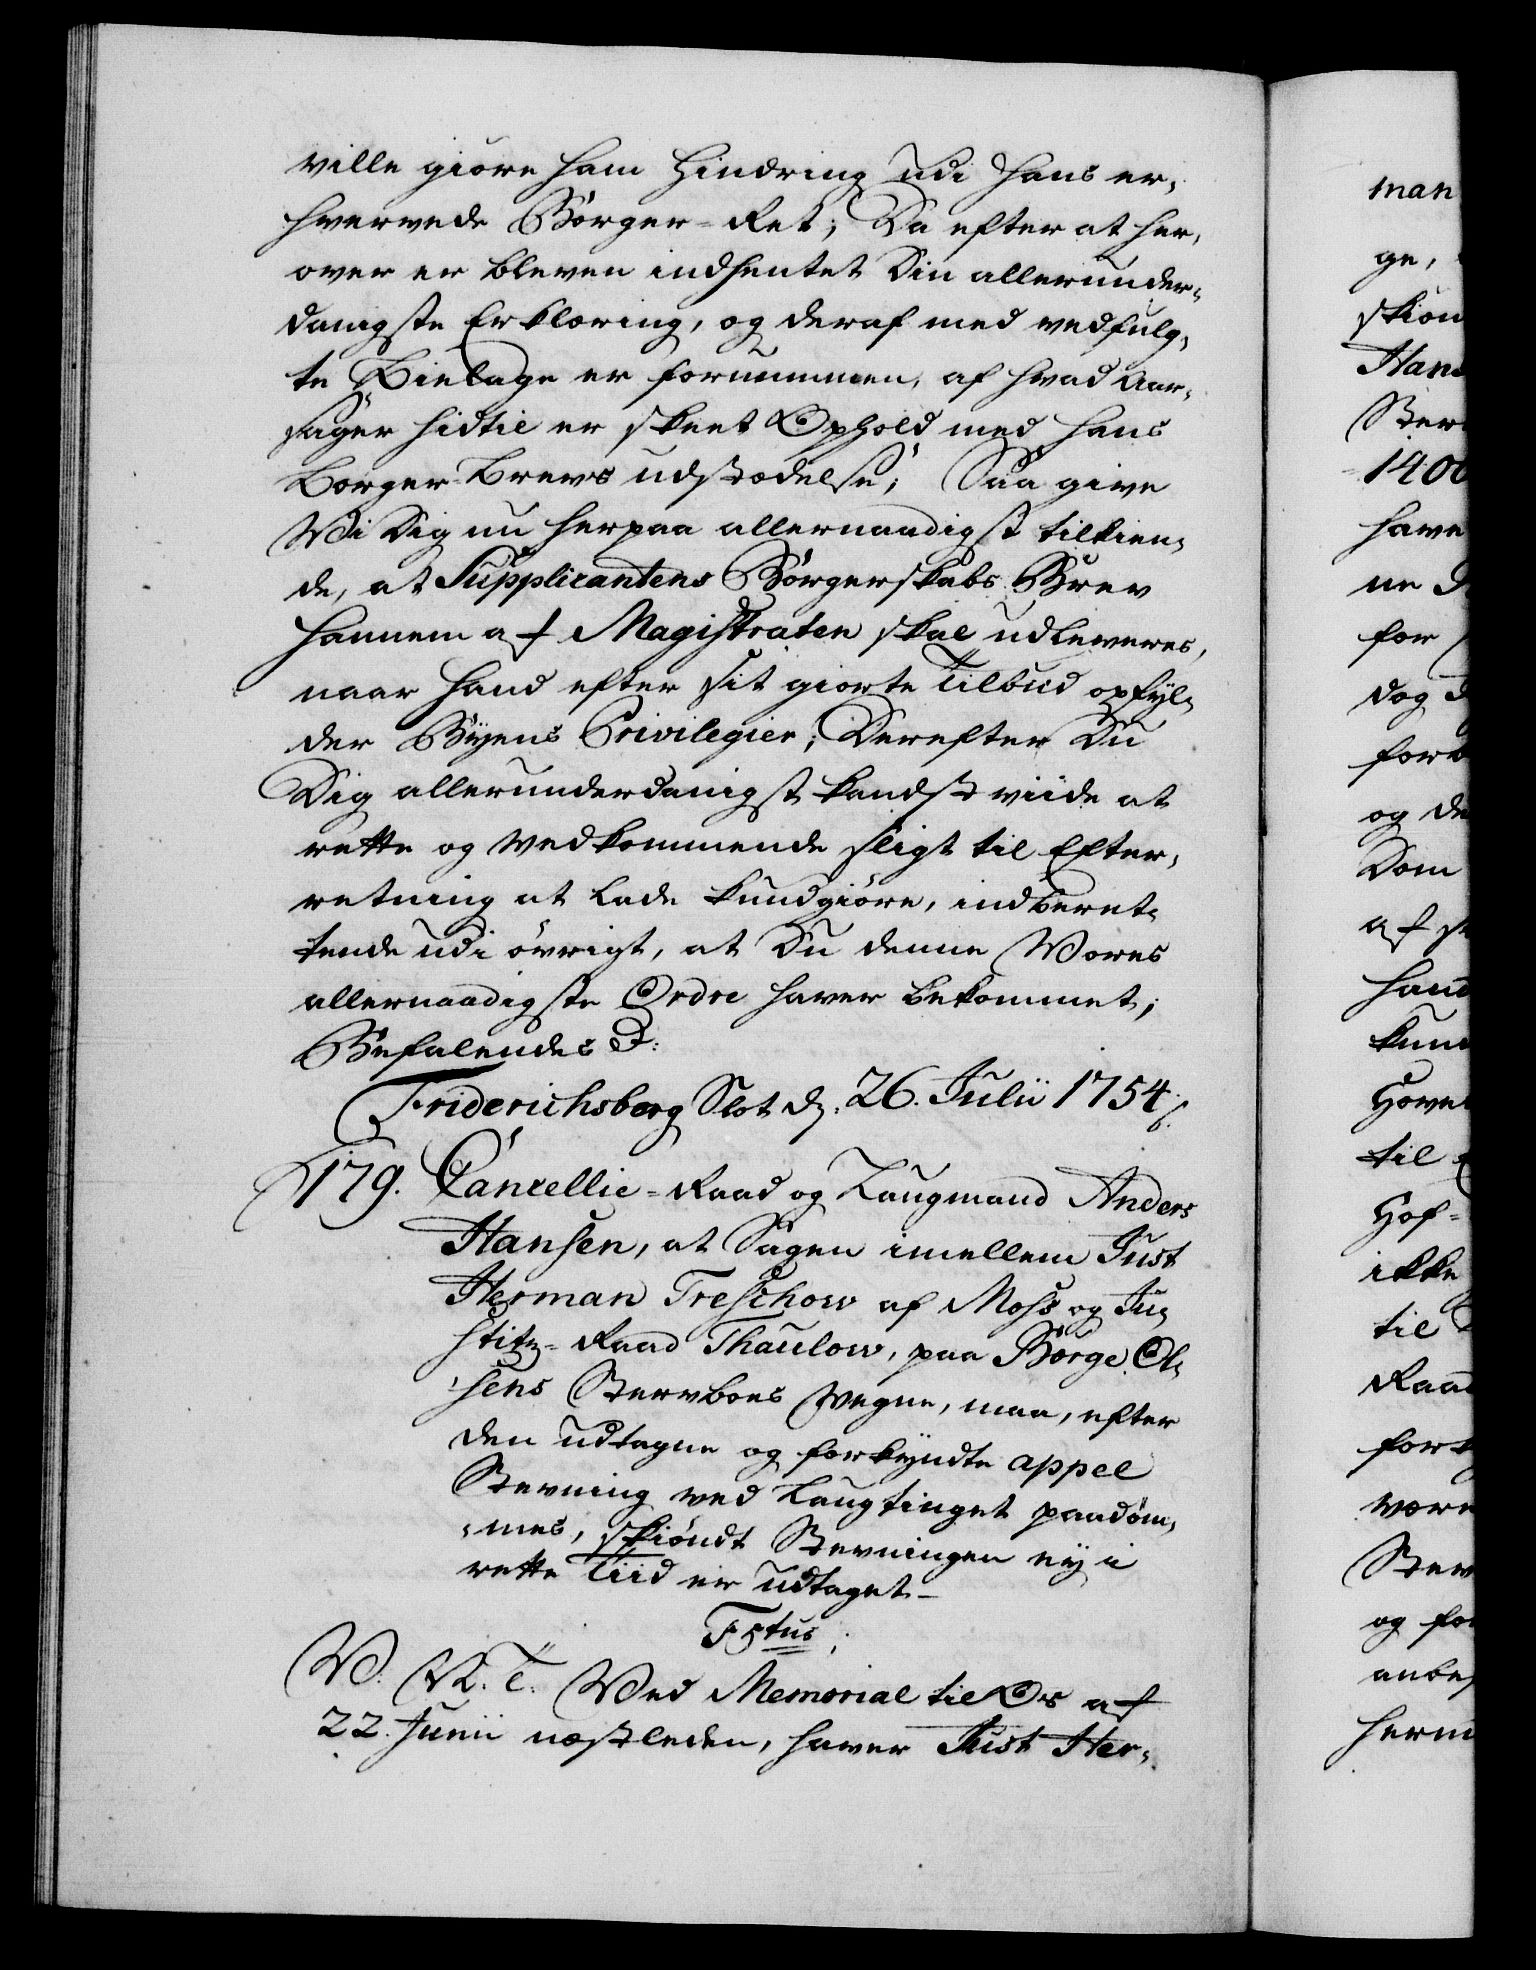 ville giöre ham Hindring udi hans er-
hvervede Börger-Ret; Da efter at her-
over er bleven indhentet Din allerunder-
danigste Erklæring, og deraf med vedfulg-
te Bielage er fornummen, af hvad Aar-
sager hidtil er skeet Ophold med hans
Borger-Brevs udstædelse; Saa give
Wi Dig nu herpaa allernaadigst tilkien-
de, at Supplicantens Börgerskabs Brev
hannem af Magistraten skal udleveres,
naar hand efter sit giorte Tilbud opfyl-
der Byens Privilegier; Derefter Du
Dig allerunderdanigst kandst viide at
rette og vedkommende sligt til Efter-
retning at lade kundgiöre, indberet-
tende udi övrigt, at Du denne Vores
allernaadigste Ordre haver bekommet;
Befalendes
Friderichsberg Slot d. 26. Julii 1754
179. Cancellie-Raad og Laugmand Anders
Hansen, at Sagen imellem Just
Herman Treschow af Moss og Ju-
stitz-Raad Thaulow, paa Börge Ol-
sens Stervboes Vegne, maa, efter
den udtagne og forkyndte appel
Stevning ved Laugtinget paadöm-
mes, skiöndt Stevningen ey i
rette Tiid er udtaget-
F5tus
W. V. T. Ved Memorial til Os af
22. Junii næstleden, haver Just Her-
man
ge,
skiön
Hans
Ster
1400
have
ne
for
dog
for
og de
Dom
af
hand
kun
Hove
til
Hof-
ikke
til
Raad
fork
være
Stev
og for
anbe
herm